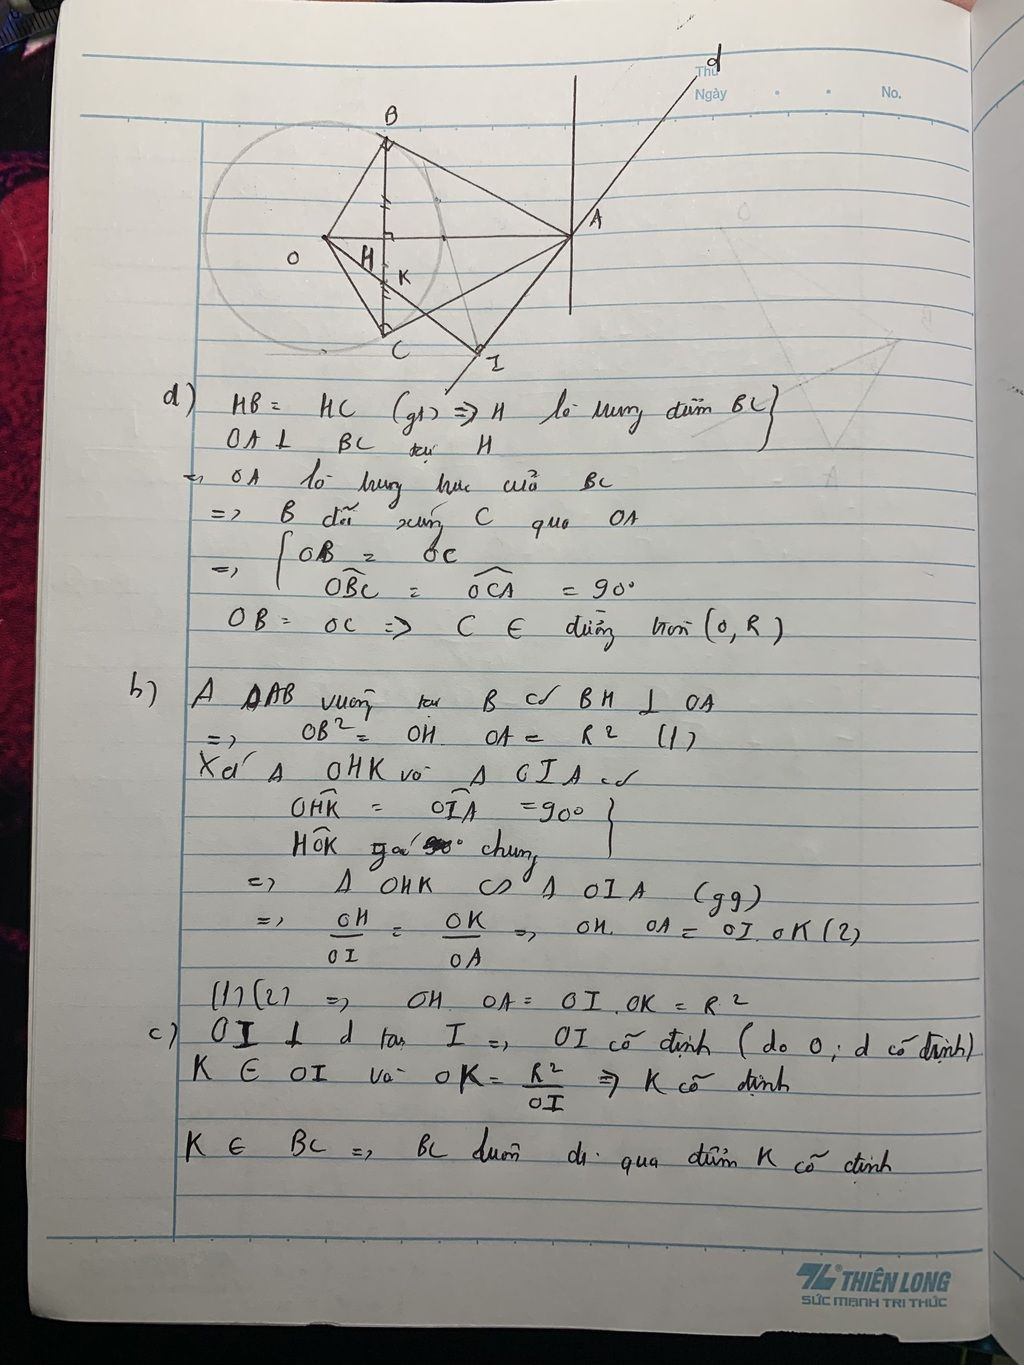 d
Thứ
Ngày . . No.
B
A
O
H
K
C
I
d) HB = HC (gt) => H là trung điểm BC
OA ⊥ BC tại H
=> OA là trung trực của BC
=> B đối xứng C qua OA
=> OB = OC
OBC = OCA = 90°
OB = OC => C ∈ đường tròn (O, R)
b) Δ OAB vuông tại B có BH ⊥ OA
=> OB² = OH. OA = R² (1)
Xét Δ OHK và Δ OIA có
OHK = OIA = 90°
HOK góc chung
=> Δ OHK ∽ Δ OIA (gg)
=> OH/OI = OK/OA => OH. OA = OI. OK (2)
(1) (2) => OH OA = OI. OK = R²
c) OI ⊥ d tại I => OI cố định (do O; d cố định)
K ∈ OI và OK = R²/OI => K cố định
K ∈ BC => BC luôn đi qua điểm K cố định
THIÊN LONG
SỨC MẠNH TRI THỨC